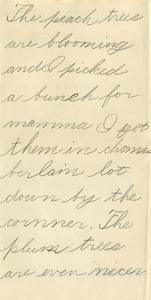 The peach trees
are blooming
and I picked
a bunch for
mamma I got
them in cham
berlain lot
down by the
cornner. The
plum trees
are even nicer